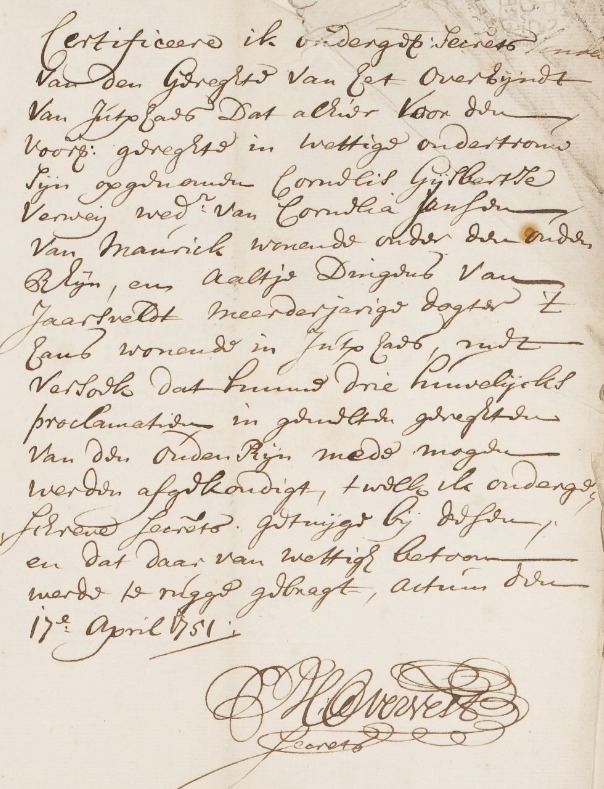 Certificeere ik ondergesz: Secrets
van den Geregte van het overeijndt
van Jutphaes Dat alhier voor den
voorsz: geregte in wettige ondertrouw
sijn opgenomen Cornelis Gijsbertse
Verweij wedr. van Cornelia Jansen
van Maurick wonende onder den ouden
Rhijn, en Aaltje Dirigens van
Jaarsveldt meerderjarige dogter t
haus wonende in Jutphaes, met
versoek dat hunne drie huwelijcks
proclamatien in gemelten geregten
van den ouden Rijn mede mogen
werden afgekondigt, twelk ik onderge,
schreve Secrets. getuijge bij desen,
en dat daar van wettigh betoon
werde te rugge gebragt, actum den
17e. April 1751:
H Oververst
Secrets